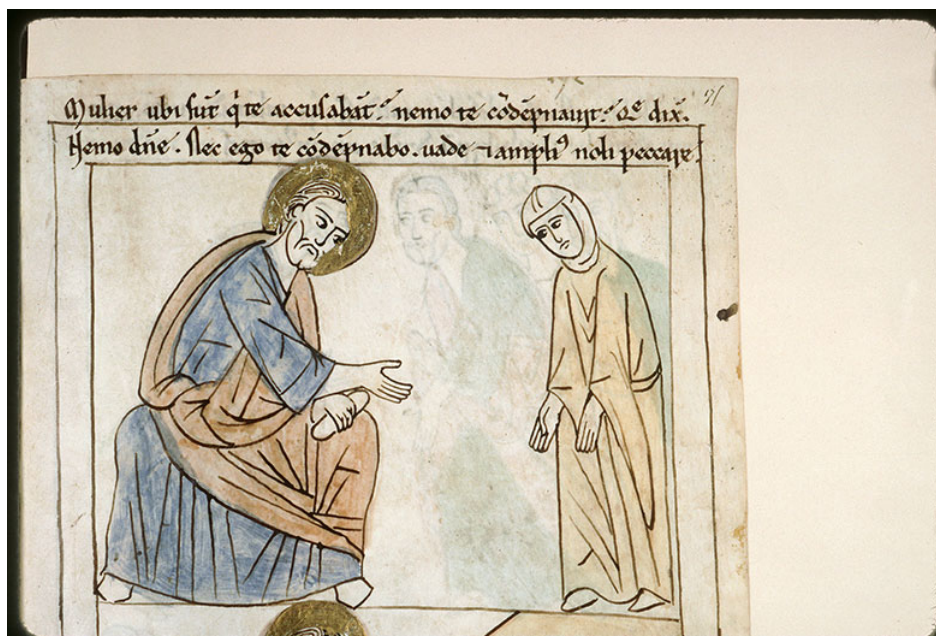 Mulier ubi sūt q̇ te accusabāt nemo te cōdēpnauit Q̄e dix̄.
Nemo dn̄e. Nec ego te cōdēpnabo. uade ⁊ ampliꝰ noli peccare